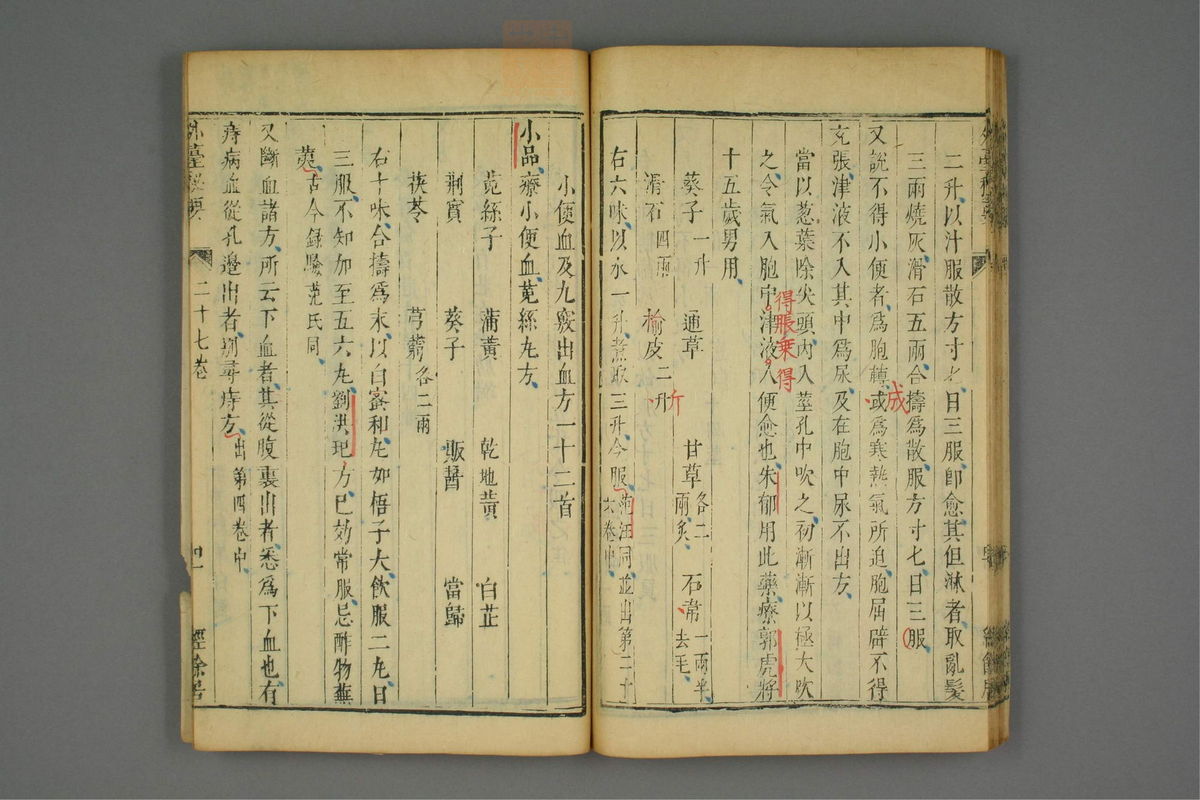 二升以汁服散方寸匕日三服卽愈其但淋者取亂髮
三兩燒灰滑石五兩合擣爲散服方寸匕日三服
又說不得小便者爲胞轉或爲寒熱氣所迫胞屈辟不得
成
充張津液不入其中爲尿及在胞中尿不出方
當以葱葉除尖頭內入莖孔中吹之初漸漸以極大吹
之令氣入胞中津液入便愈也朱郁用此藥療郭虎將
得脹乗得
十五歲男用
葵子一升 通草 甘草各二兩炙 石常一兩半去毛
滑石四兩 榆皮二升
斤
右六味以水一升煮取三升令服范汪同並出第二十六卷中
小便血及九竅出血方一十二首
小品療小便血菟絲丸方
菟絲子 蒲黃 乾地黃 白芷
荆實 葵子 敗醬 當歸
茯苓 芎藭各二兩
右十味合擣爲末以白蜜和丸如梧子大飲服二丸日
三服不知加至五六丸劉洪玘方已効常服忌酢物蕪
荑古今錄驗范氏同
又斷血諸方所云下血者其從腹裏出者悉爲下血也有
痔病血從孔邊出者別尋痔方出第四卷中
外臺秘要 二十七卷 四一 經餘居